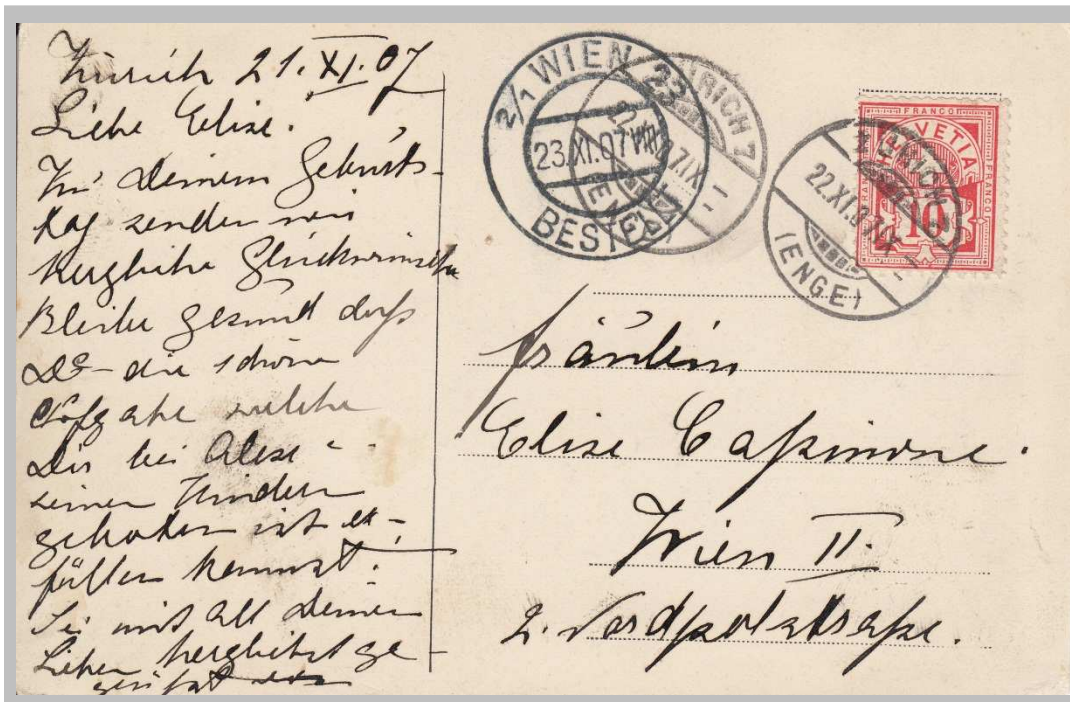 Zürich 21. XI. 07
Liebe Elise.
Zu deinem Geburts-
tag senden wir
herzliche Glückwünsche
Bleibe gesund daß
Du die schöne
Aufgabe welche
Dir bei
seinen Kindern
geboten ist er-
füllen kannst.
Sei mit all deinen
Lieben herzlichst ge-
grüßt
2/1 WIEN
23.XI.07
BESTELLT
ZÜRICH 7
(ENGE)
22.XI.07
(ENGE)
FRANCO
HELVETIA
FRANCO
10
Fräulein
Elise
Wien II.
2. Nordpolstraße.